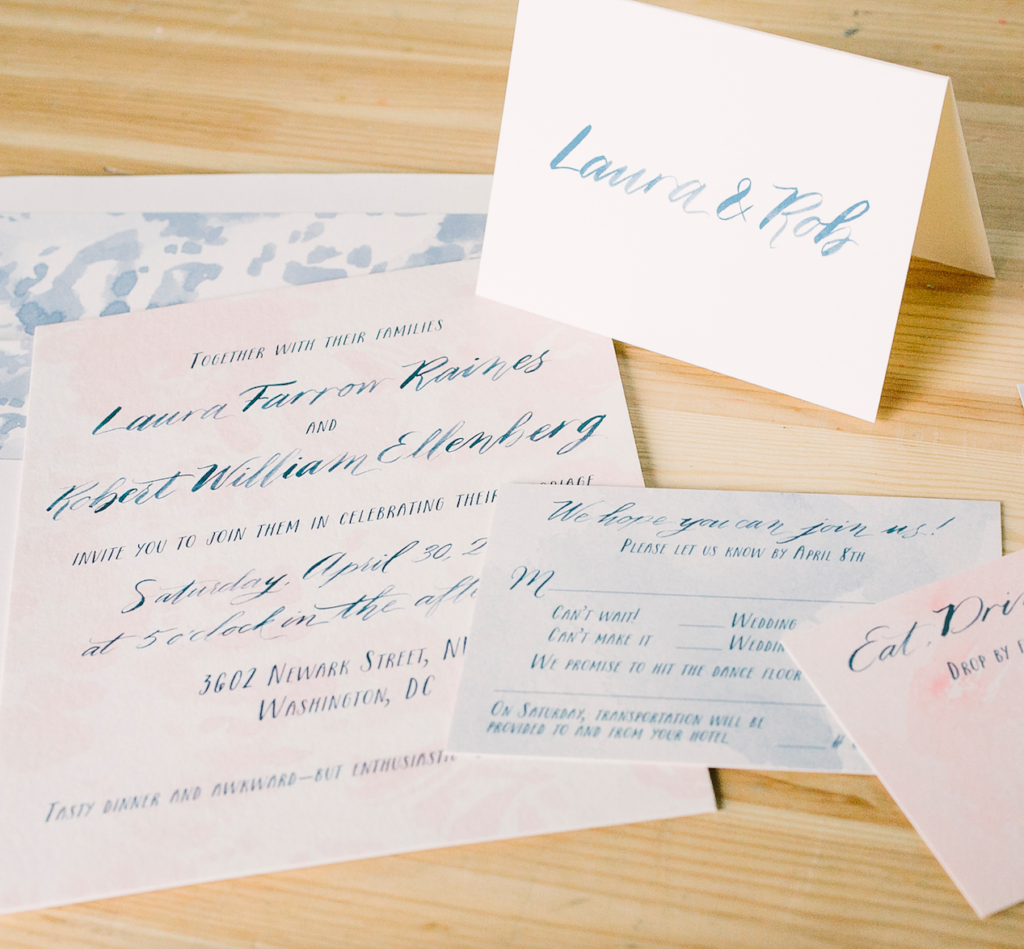 Laura & Rob
Together with their families
Laura Farrow Raines
and
Robert William Ellenberg
invite you to join them in celebrating their
Saturday, April 30, 2
at 5 o'clock in the
3602 Newark Street,
Washington, DC
Tasty dinner and awkward—but
We hope you can join us!
Please let us know by April 8th
M
Can't wait! ____ Wedding
Can't make it ____
We promise to hit the dance floor
On Saturday, transportation will be
provided to and from your hotel ____ #
Eat,
Drop by